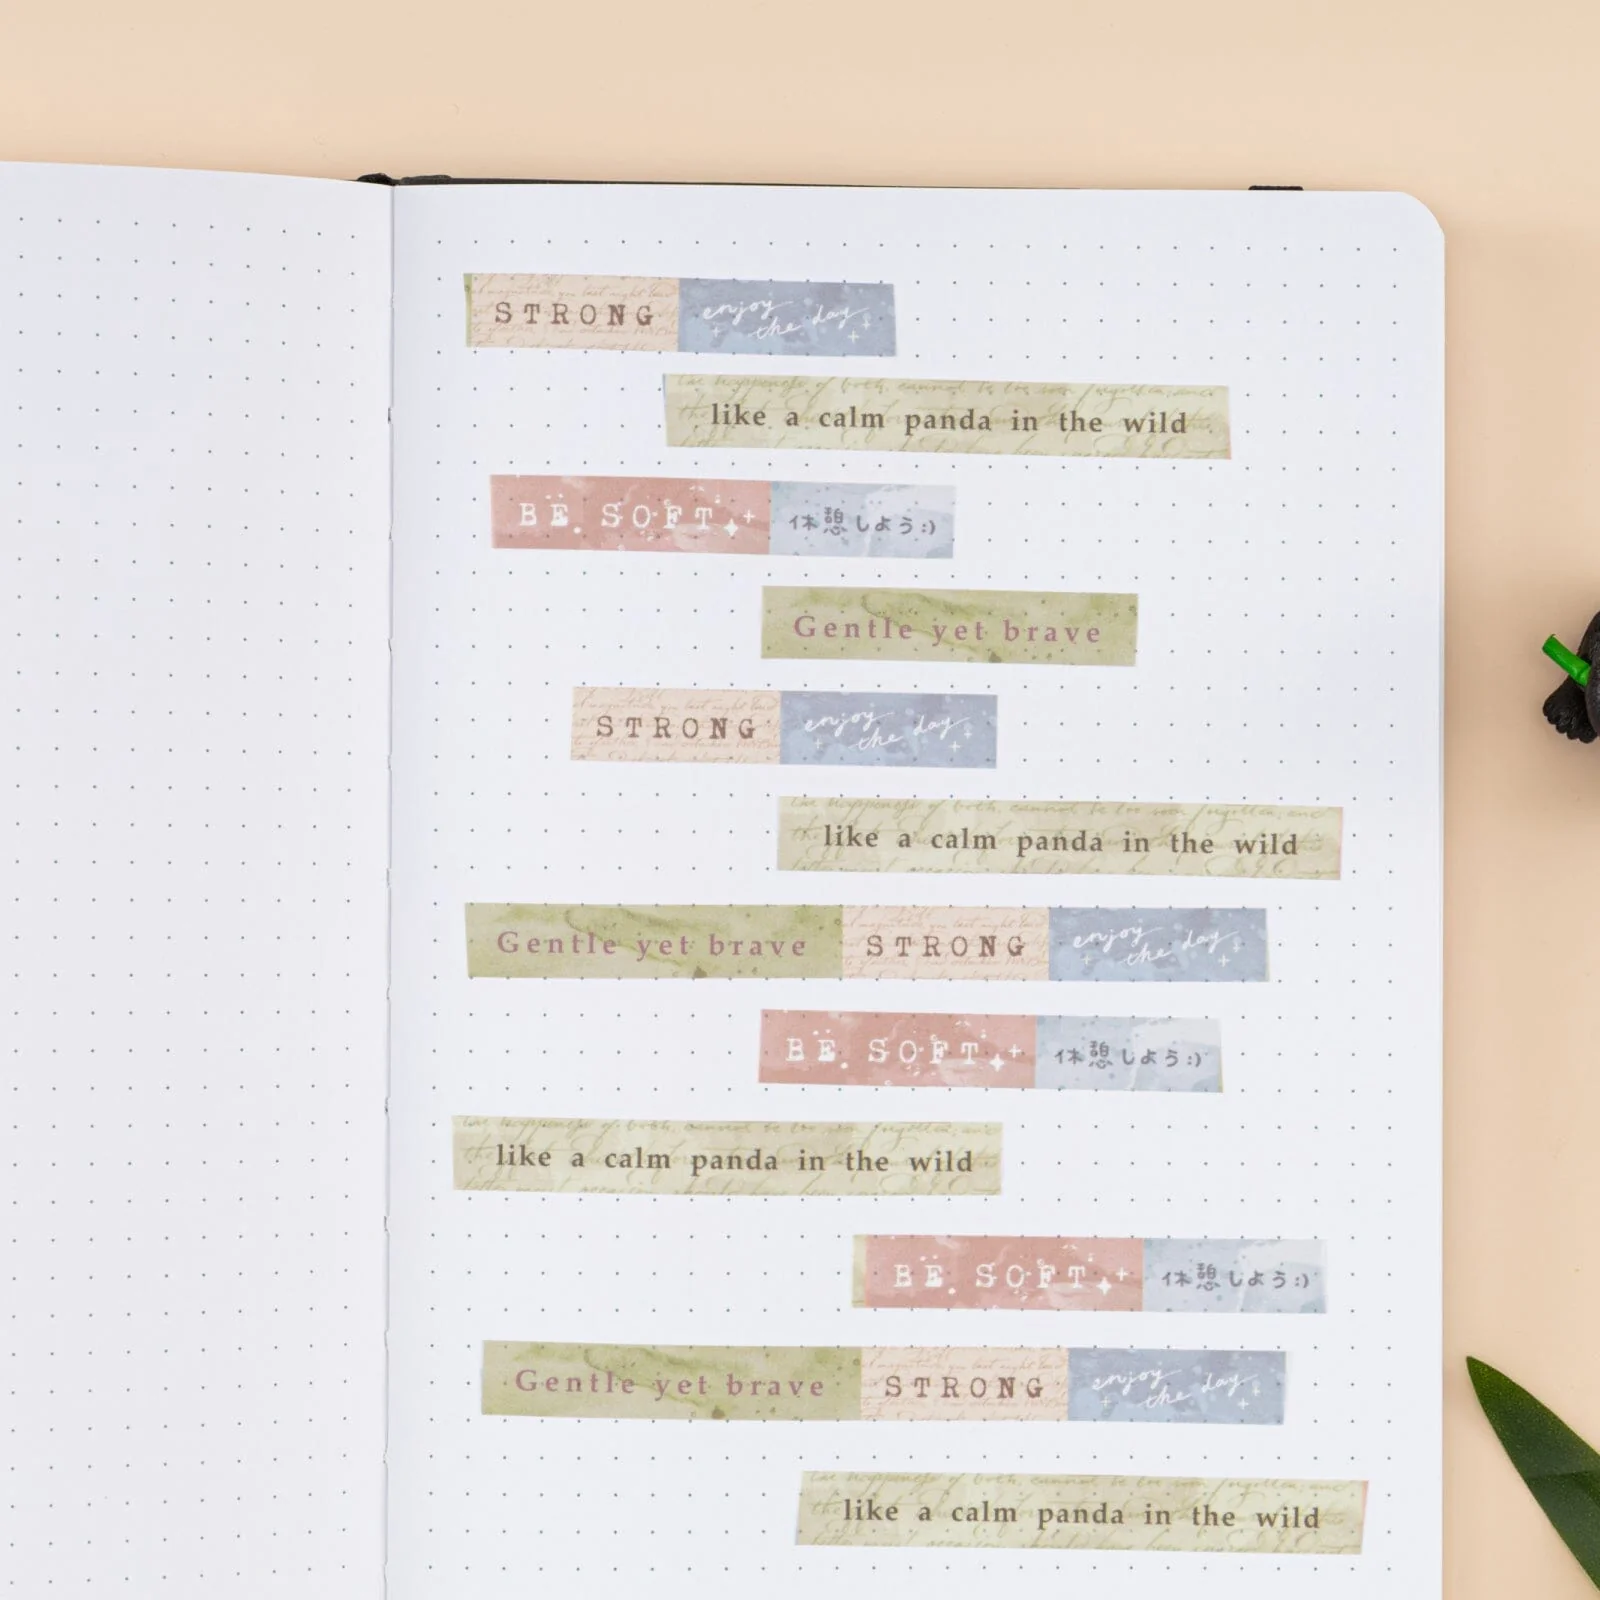 STRONG enjoy
the day
like a calm panda in the wild
BE SOFT 休憩しよう:)
Gentle yet brave
STRONG enjoy
the day
like a calm panda in the wild
Gentle yet brave STRONG enjoy
the day
BE SOFT 休憩しよう:)
like a calm panda in the wild
BE SOFT 休憩しよう:)
Gentle yet brave STRONG enjoy
the day
like a calm panda in the wild